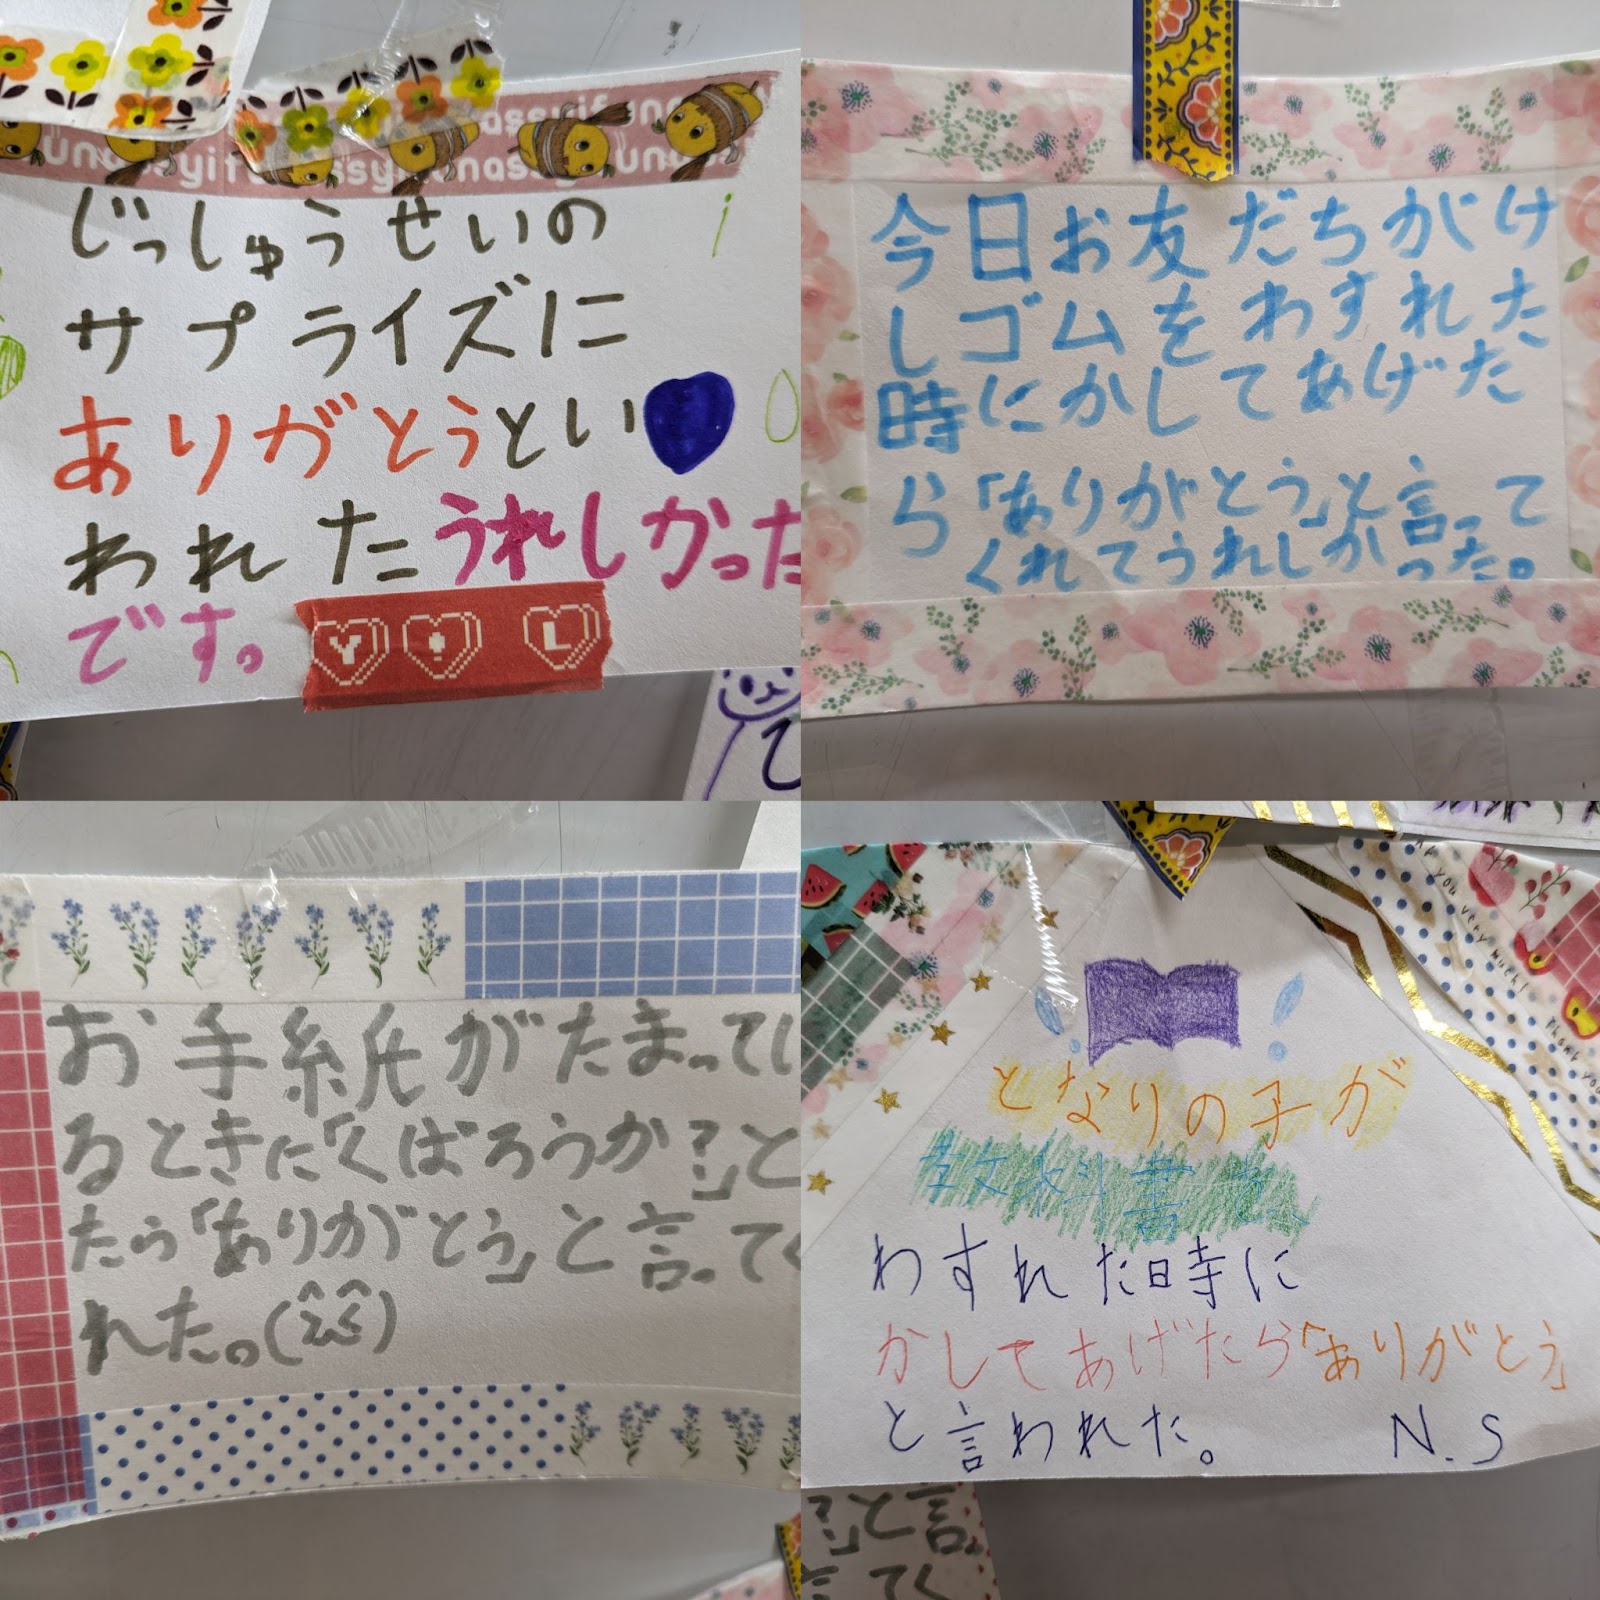 unassyi funassyi funassyi funassyi
じっしゅうせいの
サプライズに
ありがとうとい
われたうれしかった
です。
Y ! L
今日お友だちがけ
しゴムをわすれた
時にかしてあげた
ら「ありがとう」と言って
くれてうれしかった。
お手紙がたまってい
るときに「くばろうか?」と
たら「ありがとう」と言ってく
れた。(^^)
となりの子が
教科書を
わすれた時に
かしてあげたら「ありがとう」
と言われた。 N.S
you very much!
Thank you
?」と言
てく